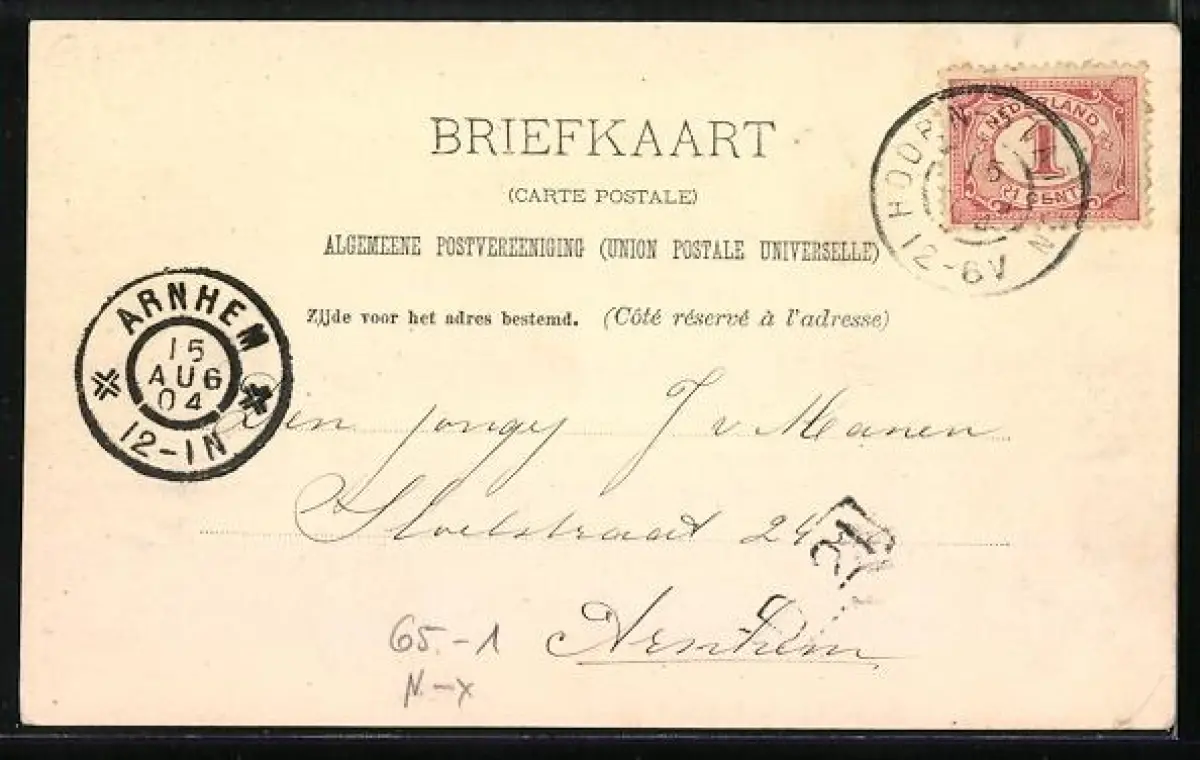 BRIEFKAART
(CARTE POSTALE)
ALGEMEENE POSTVEREENIGING (UNION POSTALE UNIVERSELLE)
Zijde voor het adres bestemd. (Côté réservé à l'adresse)
NEDERLAND
1
CENT
HOORN
5
12-6V
N
ARNHEM
15
AUG
04
12-1N
J v Manen
24
Arnhem
65.-1
N.-x